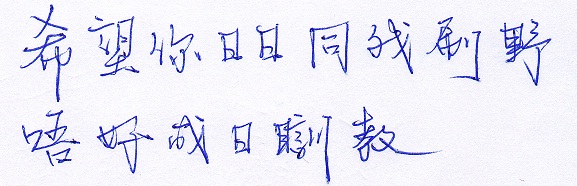 希望你日日同我刷野
唔好成日瞓教